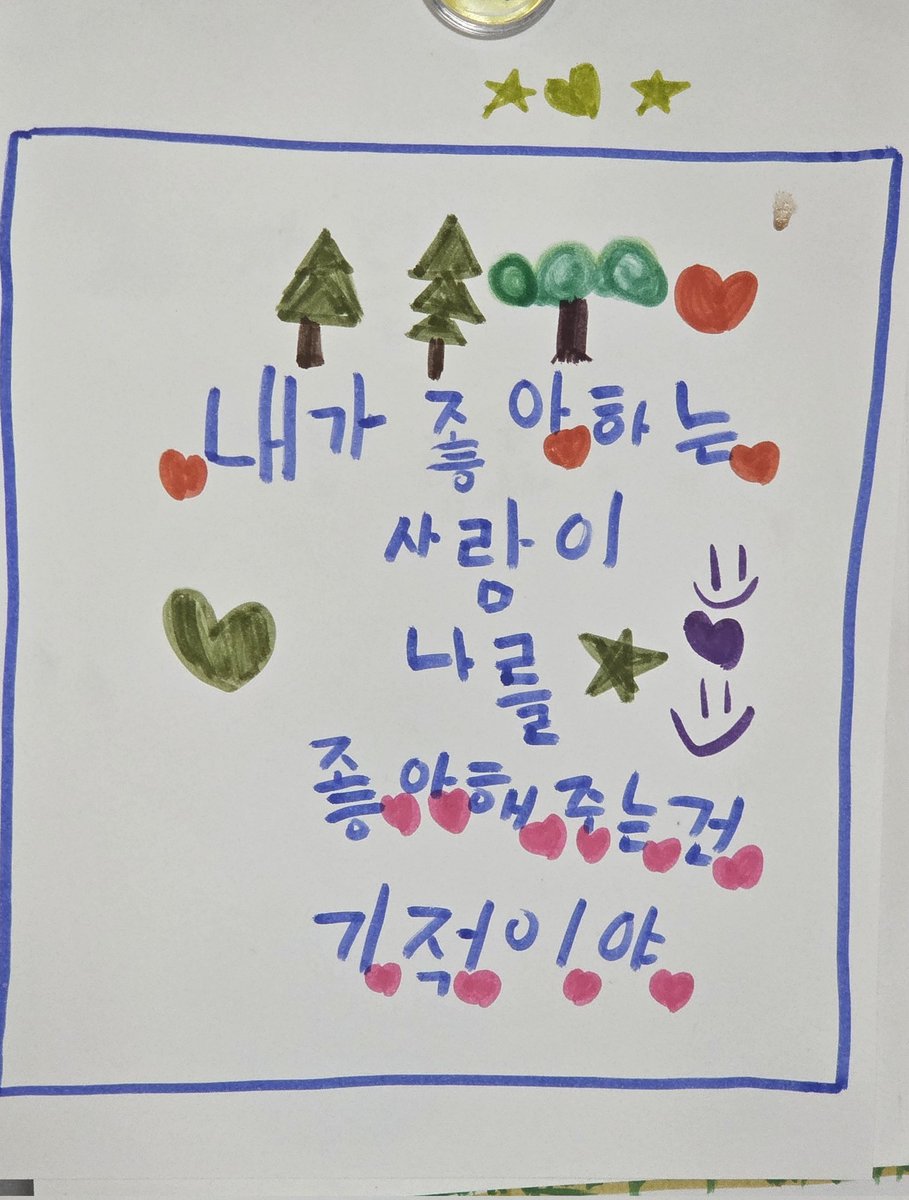 내가 좋아하는
사람이
나를
좋아해주는건
기적이야